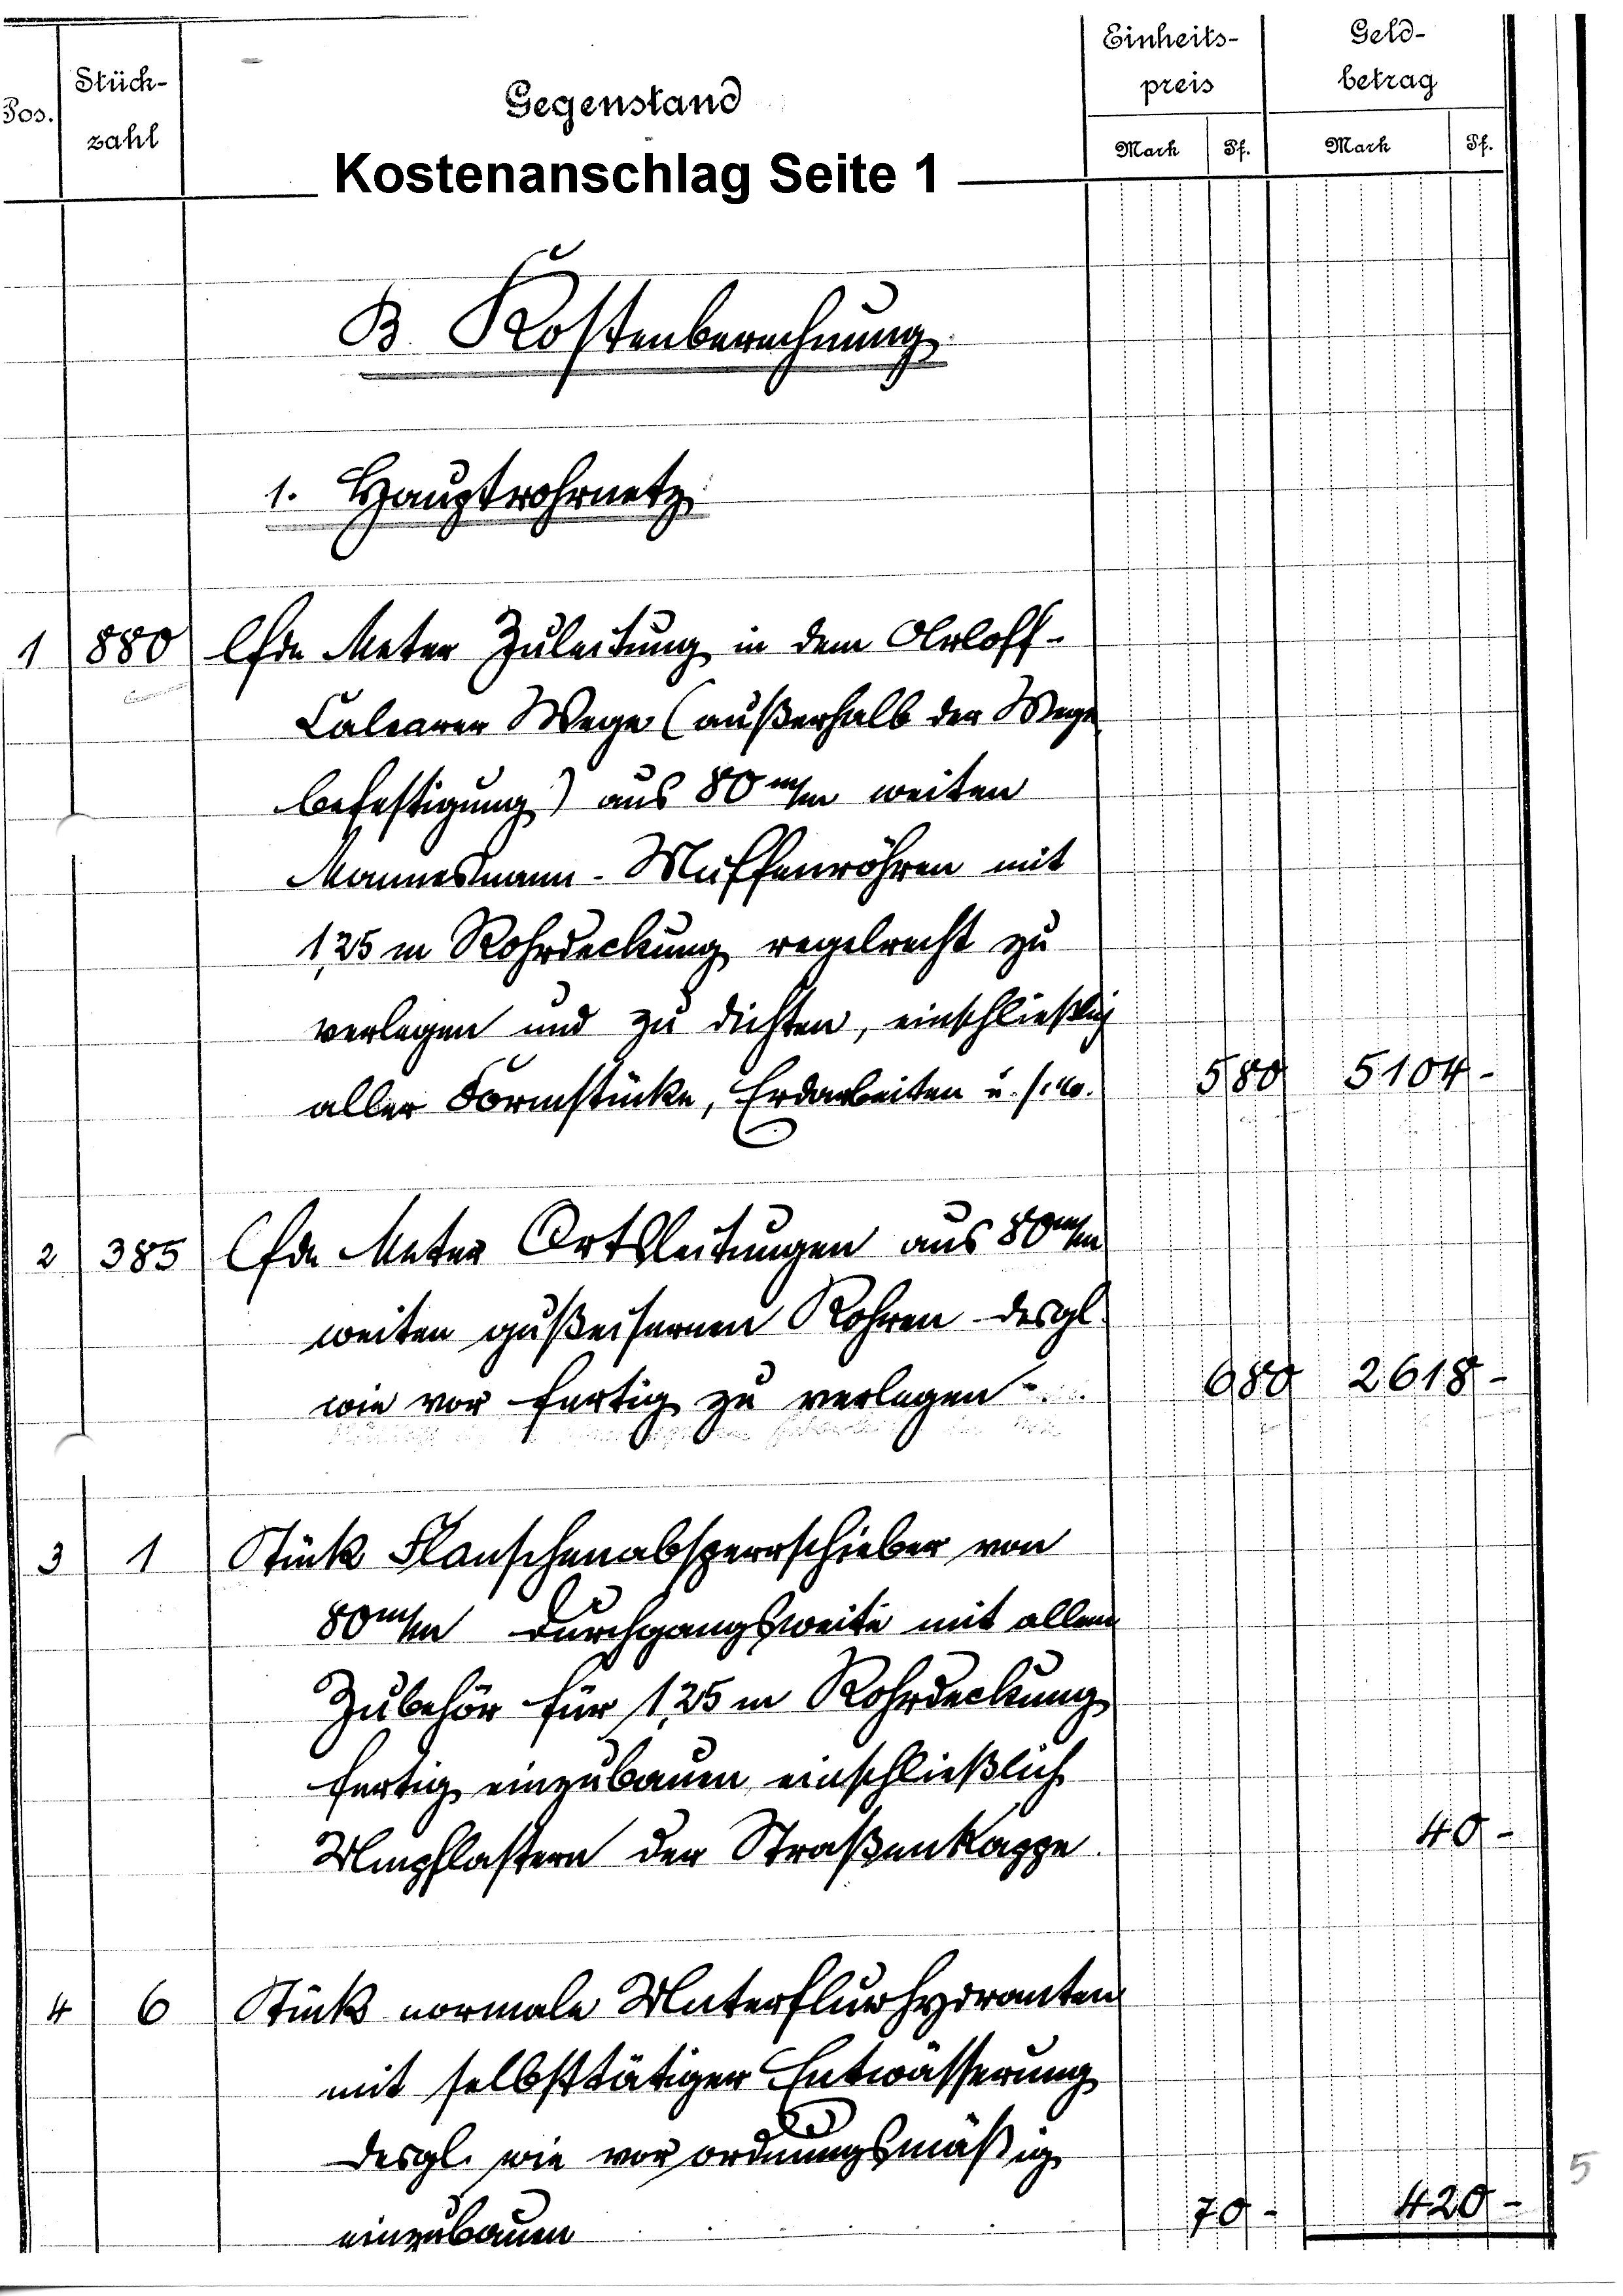 Pos.
Stück-
zahl
Gegenstand
Einheits-
preis
Geld-
betrag
Mark Pf. Mark Pf.
Kostenanschlag Seite 1
B. Kostenberechnung
1. Hauptrohrnetz
1 880 lfde Meter Zuleitung in dem Orloff-
Calearer Wege (außerhalb der Wege
befestigung) aus 80 m/m weiten
Mannesmann-Muffenröhren mit
1,25 m Rohrdeckung regelrecht zu
verlegen und zu dichten, einschließlich
aller Formstücke, Erdarbeiten u.s.w. 5 80 5104 -
2 385 lfde Meter Ortsleitungen aus 80 m/m
weiten gußeisernen Rohren desgl.
wie vor fertig zu verlegen 6 80 2618 -
3 1 Stück Flanschenabsperrschieber von
80 m/m Durchgangsweite mit allem
Zubehör für 1,25 m Rohrdeckung
fertig einzubauen einschließlich
Umpflastern der Straßenkappe. 40 -
4 6 Stück normale Unterflurhydranten
mit selbsttätiger Entwässerung
desgl. wie vor ordnungsmäßig
einzubauen 70 - 420 -
5